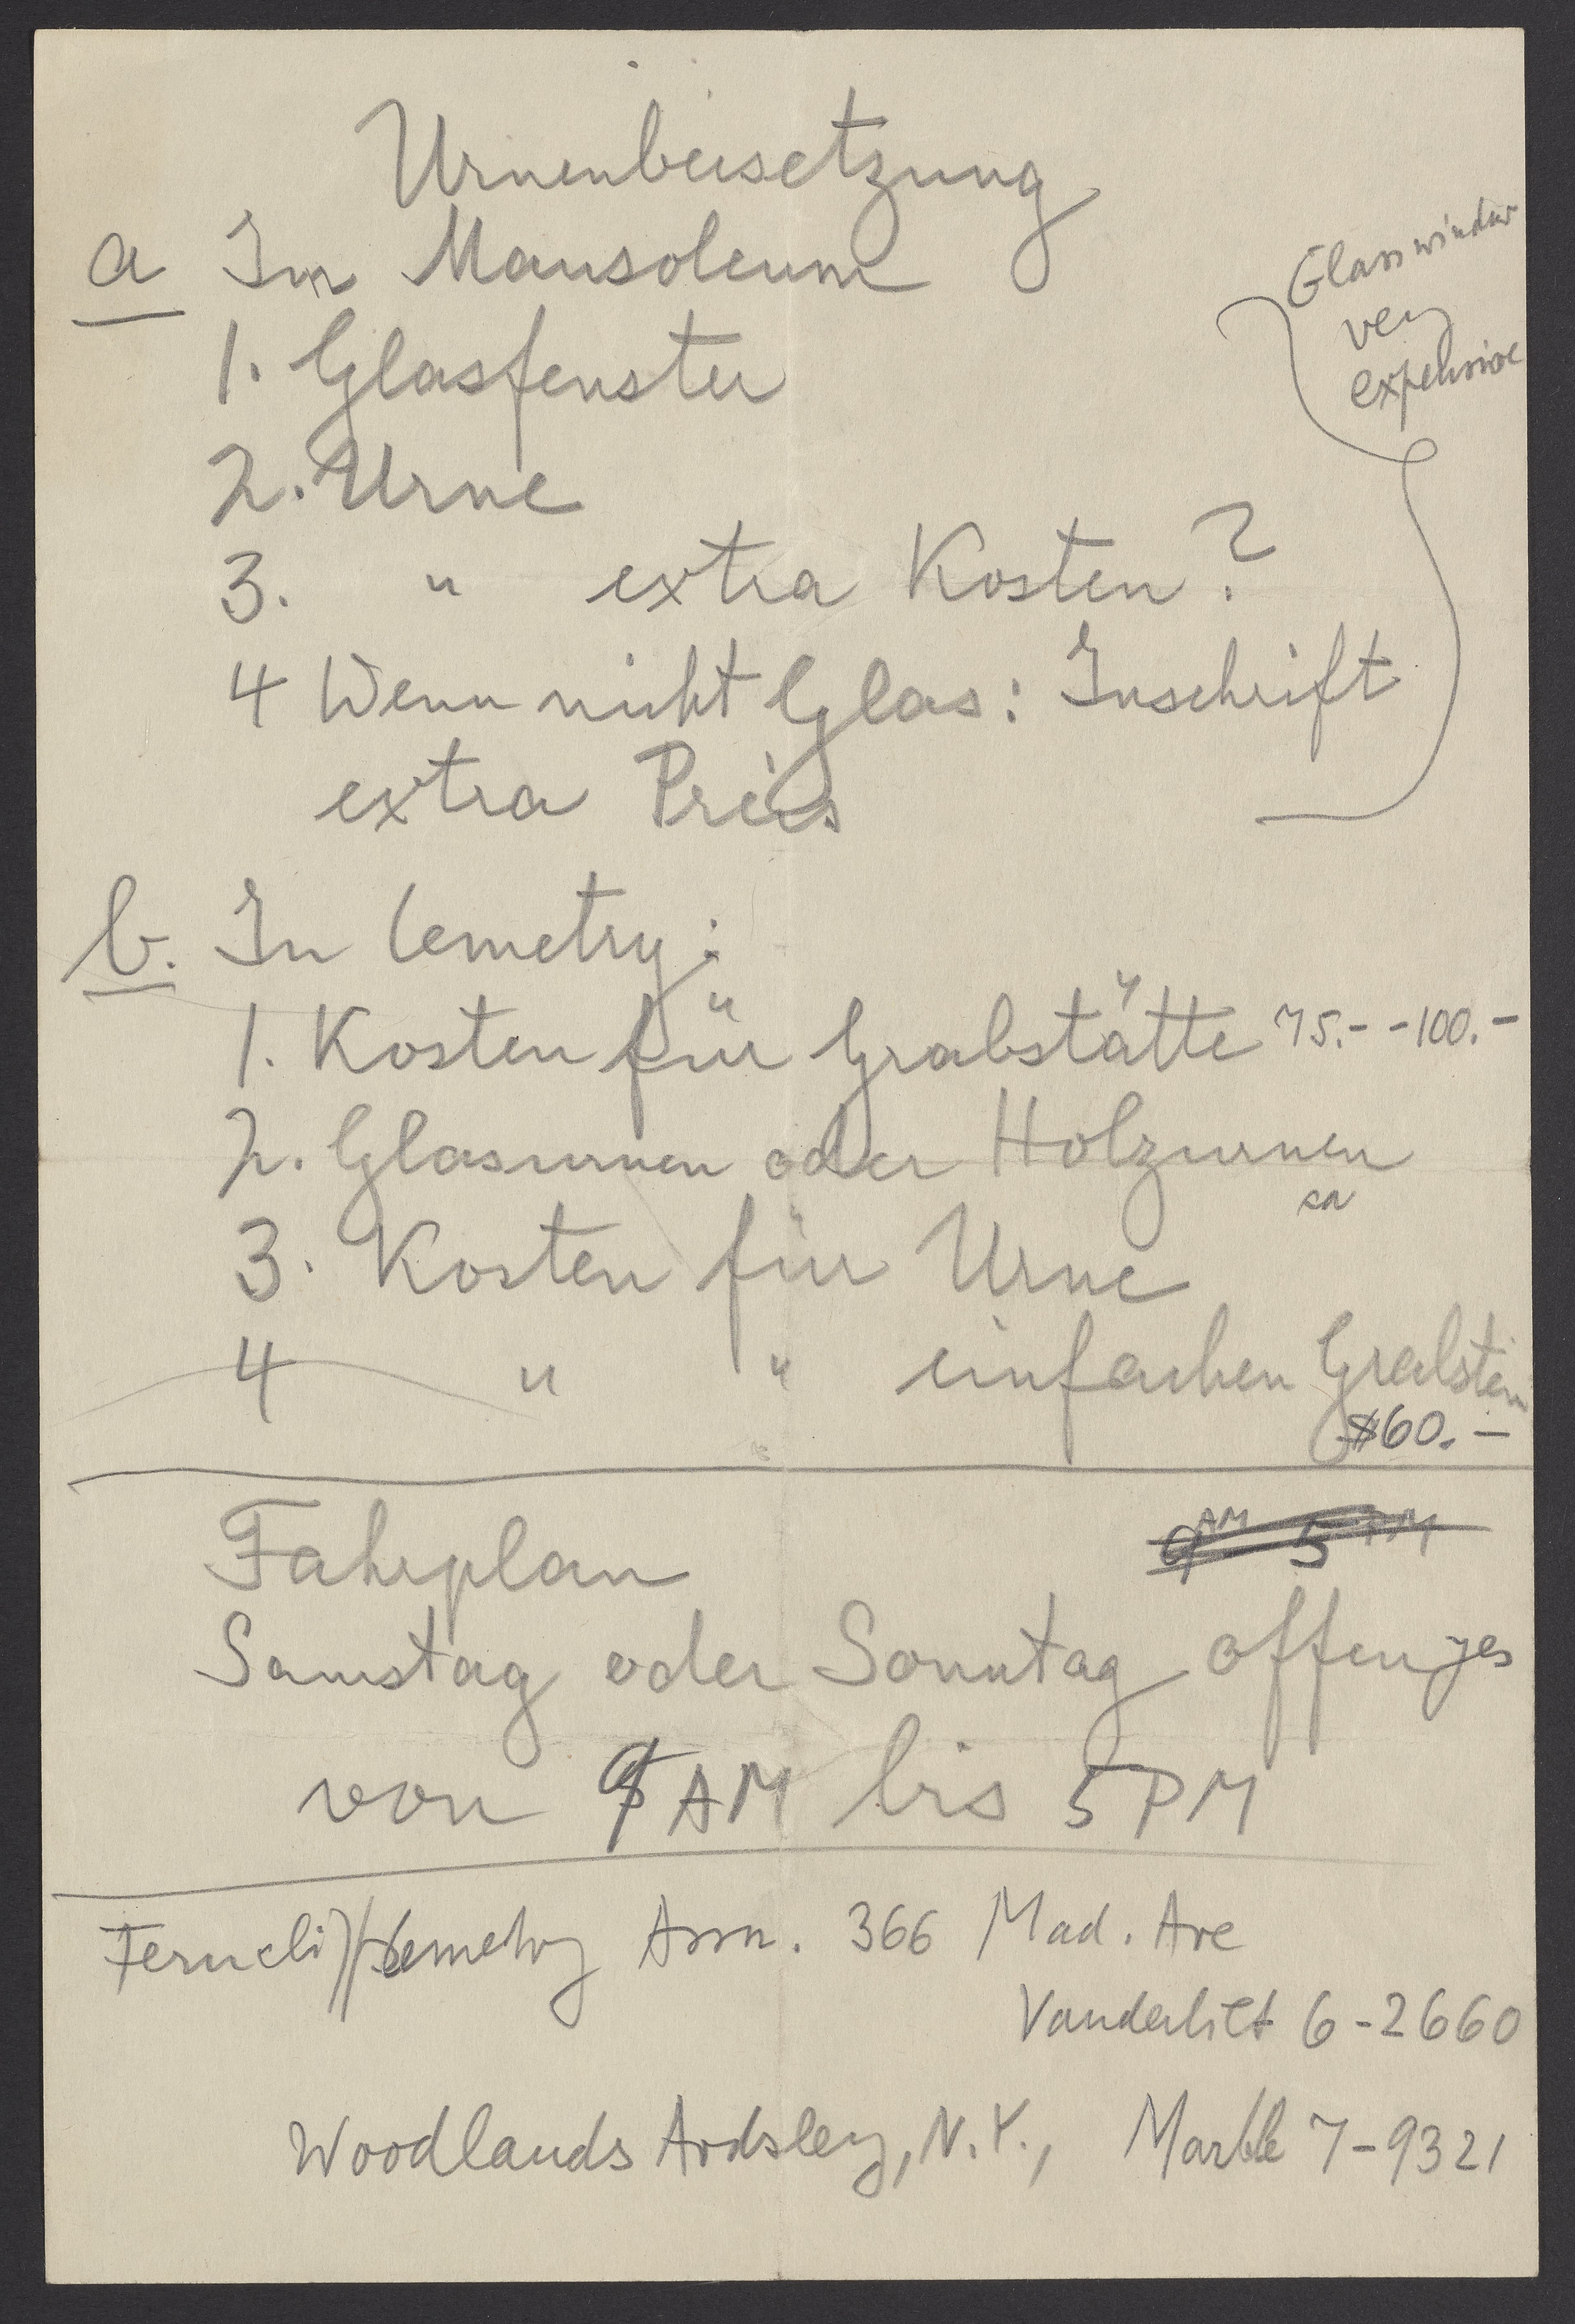 Urnenbeisetzung
a In Mausoleum
Glasswindow
very
expensive
1. Glasfenster
2. Urne
3. " extra Kosten?
4 Wenn nicht Glas: Inschrift
extra Preis
b. In Cemetry:
1. Kosten für Grabstätte 75.- -100.-
2. Glasurnen oder Holzurnen
3. Kosten für Urne
4 " " einfachen Grabstein
$60.-
Fahrplan 9 AM 5 PM
Samstag oder Sonntag offen yes
von 9 AM bis 5 PM
Ferncliff Cemetry Assn. 366 Mad. Ave
Vanderbilt 6-2660
Woodlands Ardsley, N.Y., Marble 7-9321